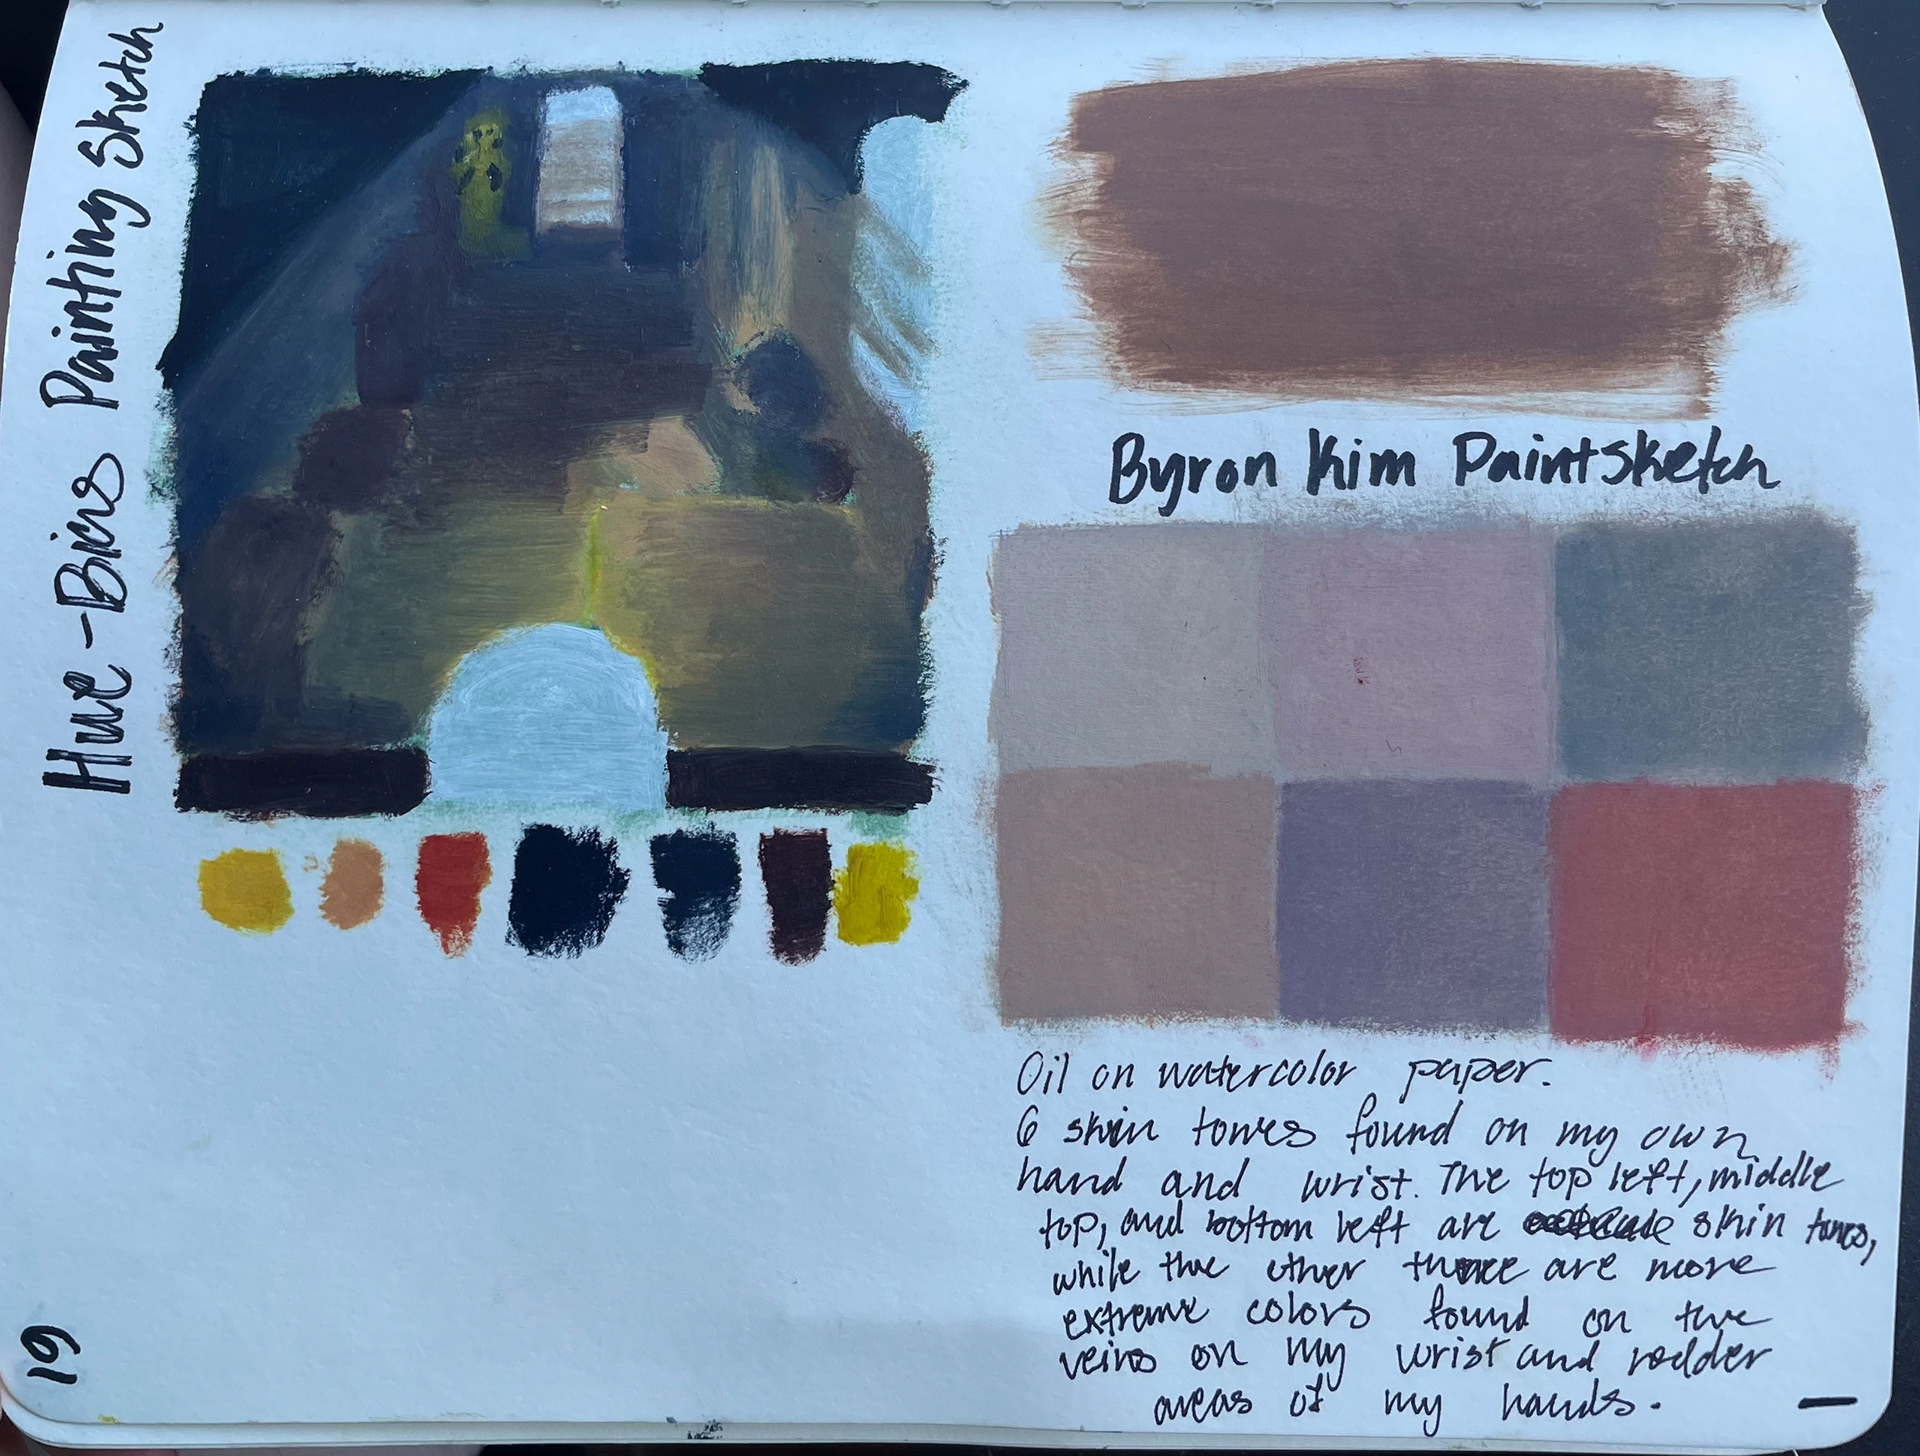 Hue-Bias Painting Sketch
Byron Kim Paintsketch
Oil on watercolor paper.
6 skin tones found on my own
hand and wrist. The top left, middle
top, and bottom left are skin tones,
while the other three are more
extreme colors found on the
veins on my wrist and redder
areas of my hands.
19